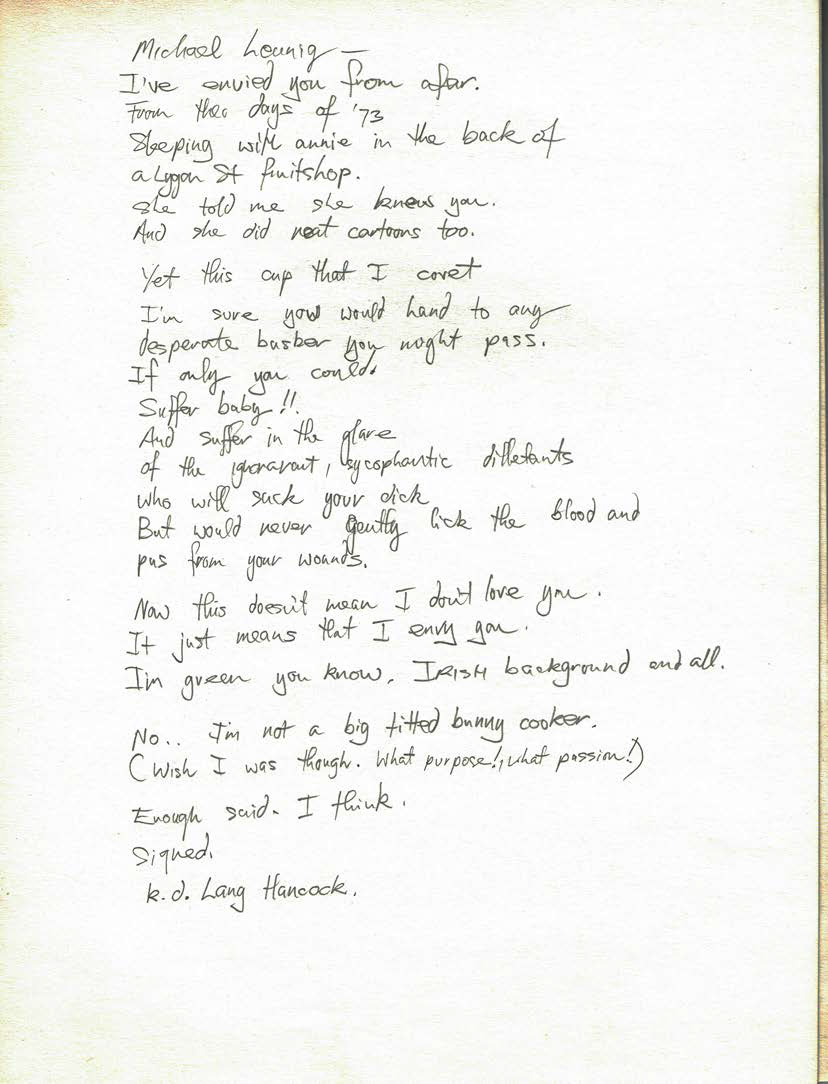 Michael Leunig —
I've envied you from afar.
From the days of '73
Sleeping with annie in the back of
a Lygon St fruitshop.
She told me she knew you.
And she did neat cartoons too.
Yet this cup that I covet
I'm sure you would hand to any
desperate busker you might pass.
If only you could.
Suffer baby!!
And suffer in the glare
of the ignoravant, sycophantic dilletants
who will suck your dick
But would never gently lick the blood and
pus from your wounds.
Now this doesn't mean I don't love you.
It just means that I envy you.
I'm green you know. IRISH background and all.
No.. I'm not a big titted bunny cooker.
(Wish I was though. What purpose!, what passion!)
Enough said. I think.
Signed.
k.d. Lang Hancock.